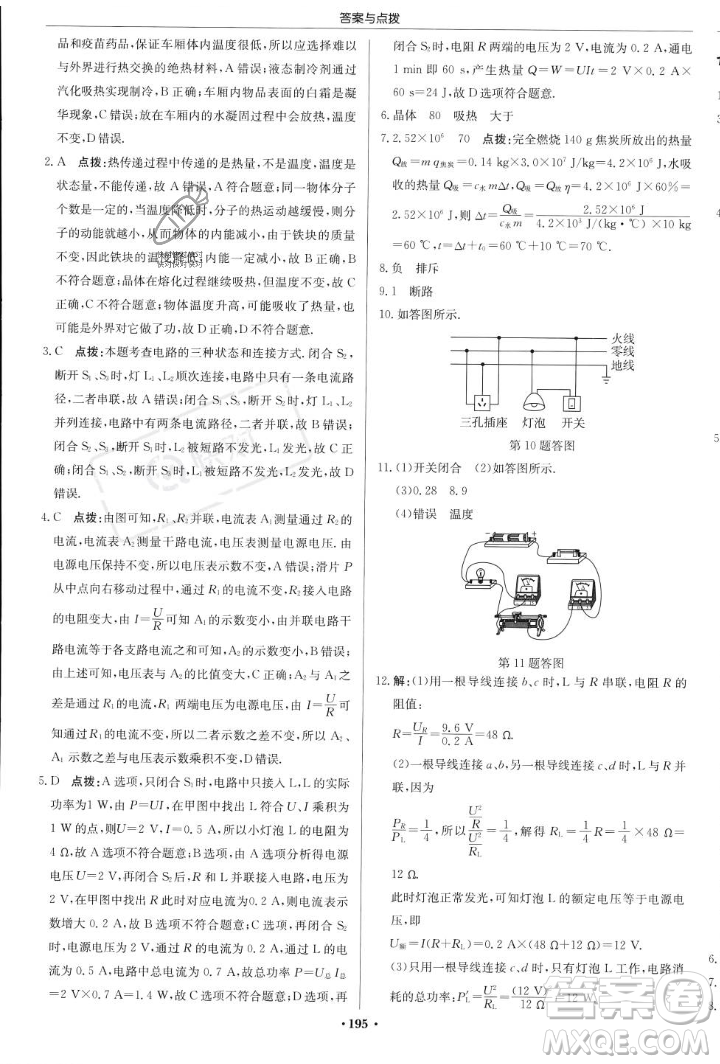 答案与点拨
品和疫苗药品，保证车厢体内温度很低，所以应选择难以
与外界进行热交换的绝热材料，A 错误；液态制冷剂通过
汽化吸热制冷，B 正确；车厢内物品表面的白霜是凝
华现象，C 错误；放在车厢体内的水凝固过程中，温度
不变，D 错误.
2. A 点拨：热传递过程中传递的是热量，不是温度，温度是
状态量，不能传递，故 A 错误，A 符合题意；一切物质分子
都在不停地做无规则运动，温度越低，分子的运动越缓慢，分
子的动能就越小，从而物体的内能减小，由于铁块的质量
不变，因此铁块的温度降低，内能减小，故 B 正确，B 不符
合题意；晶体在熔化过程继续吸热，但温度不变，故 C 正
确，C 不符合题意；物体温度升高可能吸收了热量，也可
能是外界对物体做了功，故 D 正确，D 不符合题意.
3. C 点拨：本题考查电路的三种状态和连接方式. 闭合 S₂，
断开 S₁、S₃时，灯 L₁、L₂ 顺次连接，电路中只有一条电流路
径，二者串联，故 A 错误；闭合 S₁、S₃，断开 S₂时，灯 L₁、L₂
并列连接，电路中有两条电流路径，二者并联，故 B 错误；
闭合 S₂、S₃，断开 S₁时，L₂ 被短路不发光，L₁ 发光，故 C
正确；闭合 S₁、S₂，断开 S₃时，L₁ 被短路不发光，L₂ 发光，D
错误.
4. C 点拨：由图可知，R₁、R₂ 并联，电流表 A₁ 测量通过 R₂ 的
电流，电流表 A₂ 测量干路电流，电压表测量电源电压. 由
于电源电压保持不变，各支路互不影响，所以，滑片 P
从中点向右移动过程中，通过 R₁ 的电流不变，R₂接入电路
的电阻变大，由 I=U/R可知 A₁ 的示数变小，由并联电路干
路电流等于各支路电流之和可知 A₂ 的示数变小，A、B
错误；电压表与 A₂ 示数之比变大，C 正确；A₂ 与 A₁ 示数
之差是通过 R₁的电流，R₁ 两端电压为电源电压，由 I=U/R
可知通过 R₁ 的电流不变，所以二者示数之差不变，A₂、
A₁ 示数之差与电压表示数乘积不变，D 错误.
5. D 点拨：A 选项，只闭合 S₁，电路中只接入 L，L 的实际
功率为 1 W，由 P=UI，在甲图中找出 L 对应 U、I 乘积为
1 W 的点，则U=2 V，I=0.5 A，所以小灯泡 L 的电阻为
4 Ω，故 A 选项不符合题意；由 A 选项分析可得电源电
压为 2 V，闭合 S₁后，R 和 L 并联接入电路，R 两端的电
压为 2 V，在甲图中找出此时 R 对应电流为0.2 A，则电流表示
数增大 0.2 A，故 B 选项不符合题意；C 选项，再闭合 S₂
后，电路中总电流为 0.7 A，故总功率 P=U总I总
=2 V×0.7 A=1.4 W，故 C 选项不符合题意；D 选项，再
闭合 S₂ 时，电阻 R 两端的电压为 2 V，电流为 0.2 A，通电
1 min 即 60 s，产生热量 Q=W=UIt=2 V×0.2 A×
60 s=24 J，故 D 选项符合题意.
6. 晶体 80 吸热 大于
7. 2.52×10⁶ 70 点拨：完全燃烧 140 g 焦炭所放出的热量
Q放=m q焦炭=0.14 kg×3×10⁷ J/kg=4.2×10⁶ J，水吸
收的热量 Q吸=c水 mΔt，Q吸=Q放 η=4.2×10⁶ J×60%=
2.52×10⁶ J，则 Δt=Q吸/c水m=2.52×10⁶ J/4.2×10³ J/(kg·℃)×10 kg=
60 ℃，t=Δt+t₀=60 ℃+10 ℃=70 ℃.
8. 负 排斥
9. 1 断路
10. 如答图所示.
火线
零线
地线
三孔插座 灯泡 开关
第 10 题答图
11. (1)开关闭合 (2)如答图所示.
(3)0.28 8.9
(4)错误 温度
第 11 题答图
12. 解：(1)用一根导线连接 b、c 时，L 与 R 串联，电阻 R 的
阻值：
R=U_R/I=9.6 V/0.2 A=48 Ω.
(2)一根导线连接 a、b，另一根导线连接 c、d 时，L 与 R
并联，电压相等，此时电阻 R 与灯泡 L 消耗的功率之比为
P_R/P_L=1/4，所以(U²/R)/(U²/R_L)=1/4，解得 R_L=1/4 R=1/4×48 Ω=
12 Ω.
此时灯泡正常发光，可知灯泡 L 的额定电压等于电源电
压，即
U额=I(R+R_L)=0.2 A×(48 Ω+12 Ω)=12 V.
(3)只用一根导线连接 c、d 时，仅灯泡 L 工作，电路消
耗的总功率：P'_L=U²/R_L=(12 V)²/12 Ω=12 W.
· 195 ·